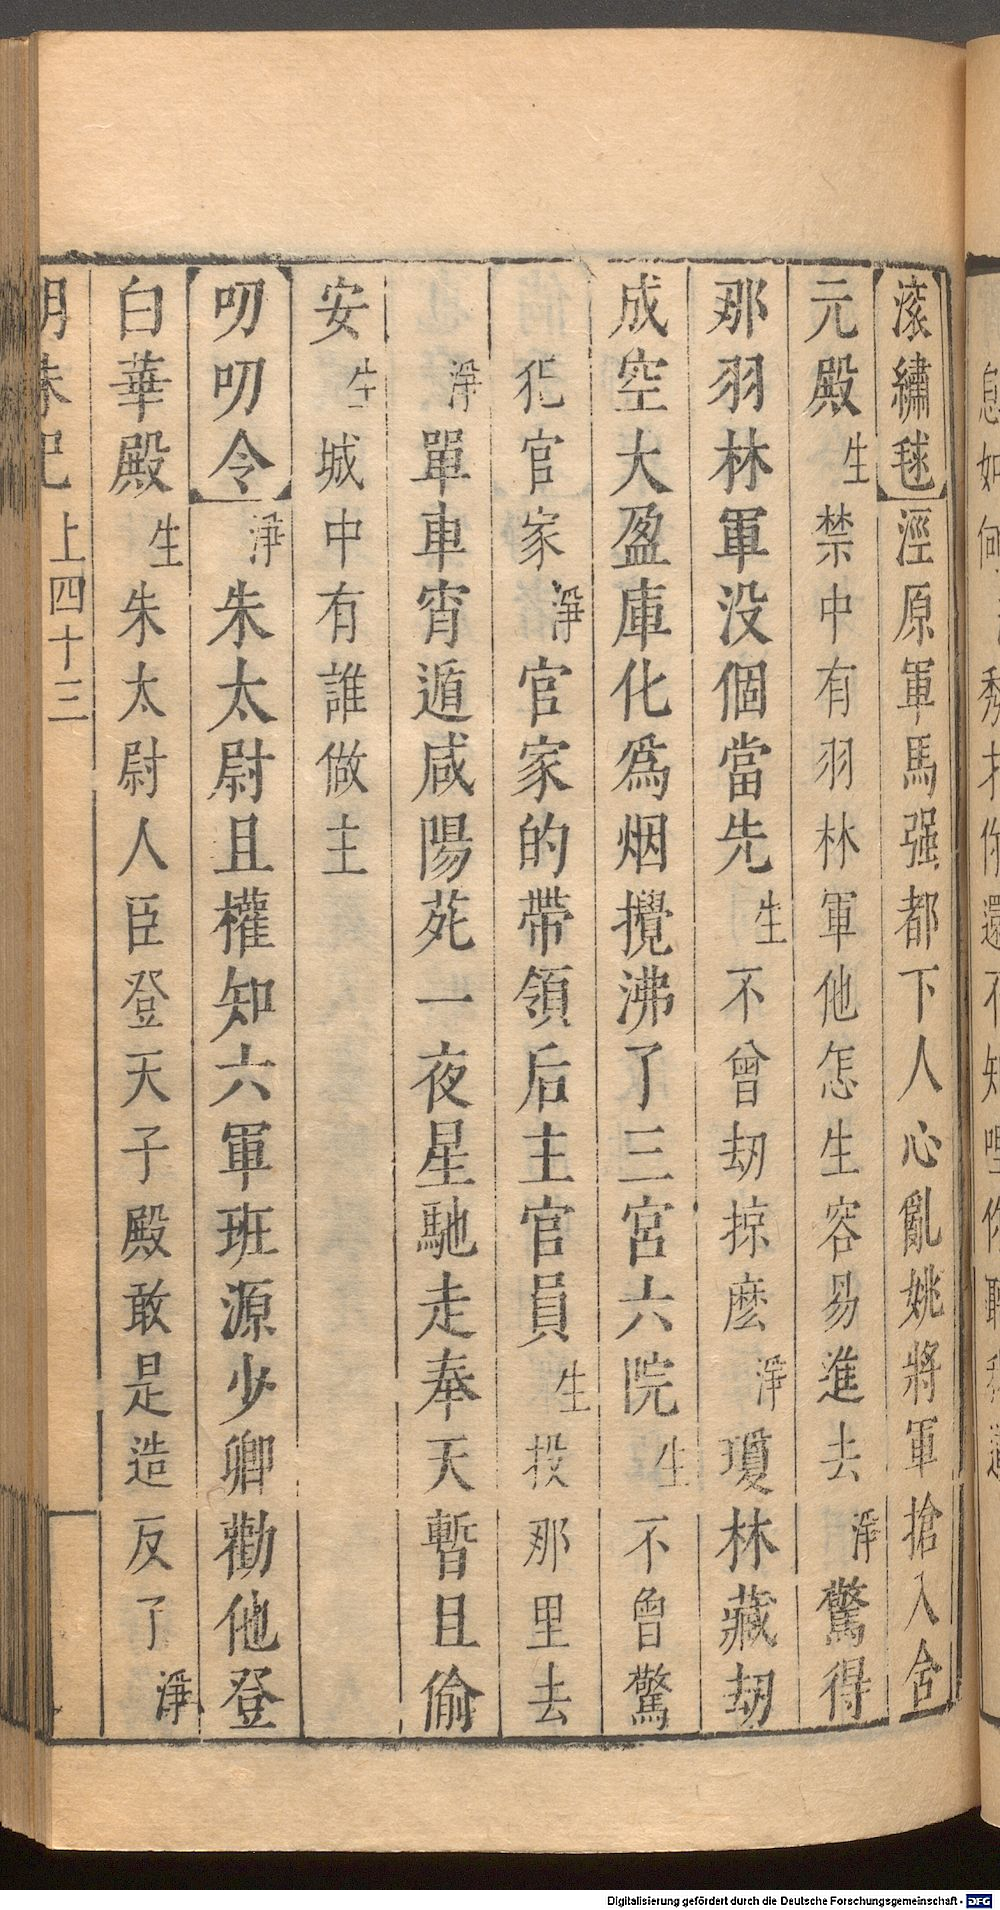 【滾繡毬】涇原軍馬强都下人心亂姚將軍搶入含
元殿生禁中有羽林軍他怎生容易進去淨驚得
那羽林軍没個當先生不曾刼掠麽淨瓊林藏刼
成空大盈庫化爲烟攪沸了三宮六院生不曾驚
犯官家淨官家的帶領后主官員生投那里去
淨單車宵遁咸陽苑一夜星馳走奉天暫且偷
安生城中有誰做主
【叨叨令】淨朱太尉且權知六軍班源少卿勸他登
白華殿生朱太尉人臣登天子殿敢是造反了淨
明珠記
上四十三
Digitalisierung gefördert durch die Deutsche Forschungsgemeinschaft - DFG